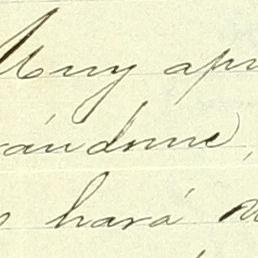 Muy apr
rándome,
s hará